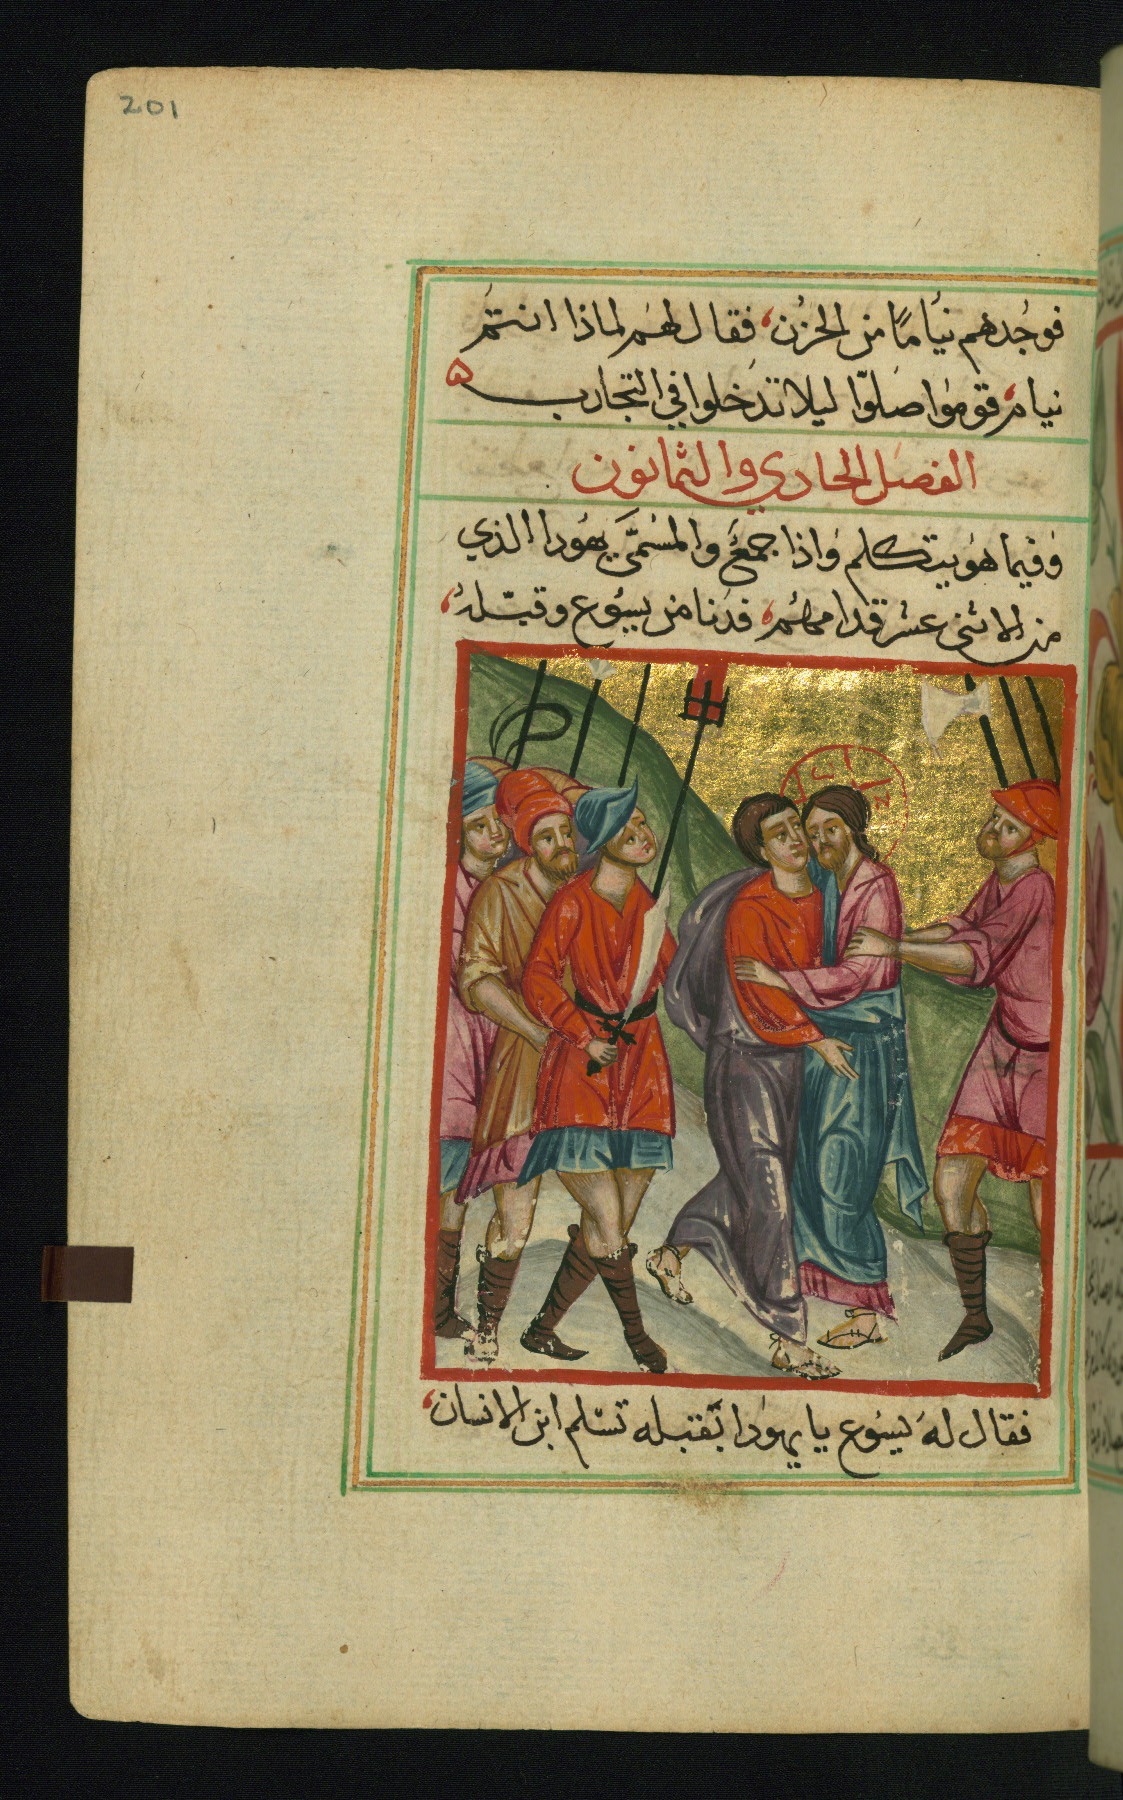 201
فوجدهم نيامًا من الحزن، فقال لهم لماذا انتم
نيام، قوموا صلوّا ليلا تدخلوا في التجارب ه
الفصل الحادي والثمانون
وفيما هو يتكلم واذا جمع والمسمّى يهودا الذي
من الاثنى عشر قدامهم، فدنا من يسوع وقبّله،
فقال له يسوع يا يهودا بقتبله تسّلم ابن الانسان،